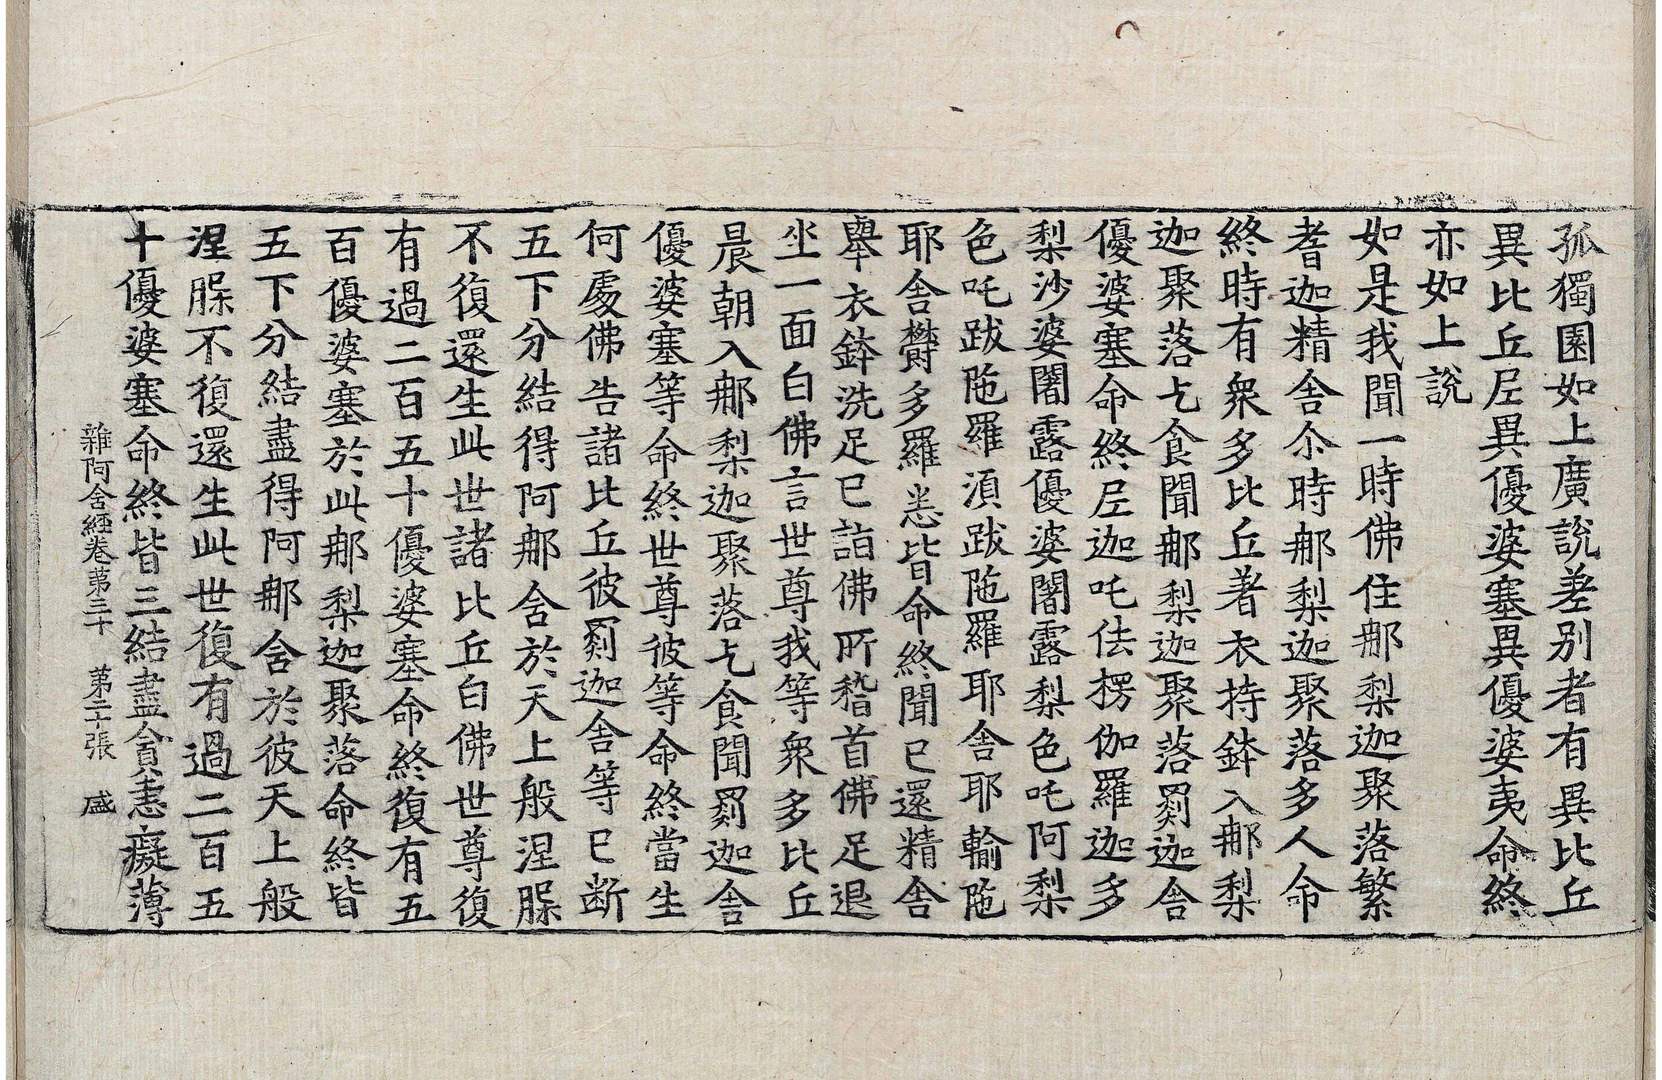 孤獨園如上廣說差别者有異比丘
異比丘尼異優婆塞異優婆夷命終
亦如上說
如是我聞一時佛住那梨迦聚落繁
耆迦精舍尒時那梨迦聚落多人命
終時有衆多比丘著衣持鉢入那梨
迦聚落乞食聞那梨迦聚落罽迦舍
優婆塞命終尼迦吒佉楞伽羅迦多
梨沙婆闍露優婆闍露梨色吒阿梨
色吒跋陁羅湏跋陁羅耶舍耶輸陁
耶舍欝多羅悉皆命終聞已還精舍
舉衣鉢洗足已詣佛所稽首佛足退
坐一面白佛言世尊我等衆多比丘
晨朝入那梨迦聚落乞食聞罽迦舍
優婆塞等命終世尊彼等命終當生
何處佛告諸比丘彼罽迦舍等已断
五下分結得阿那含於天上般涅槃
不復還生此世諸比丘白佛世尊復
有過二百五十優婆塞命終復有五
百優婆塞於此那梨迦聚落命終皆
五下分結盡得阿那含於彼天上般
涅槃不復還生此世復有過二百五
十優婆塞命終皆三結盡貪恚癡薄
雜阿含經卷第三十 第二十張 盛